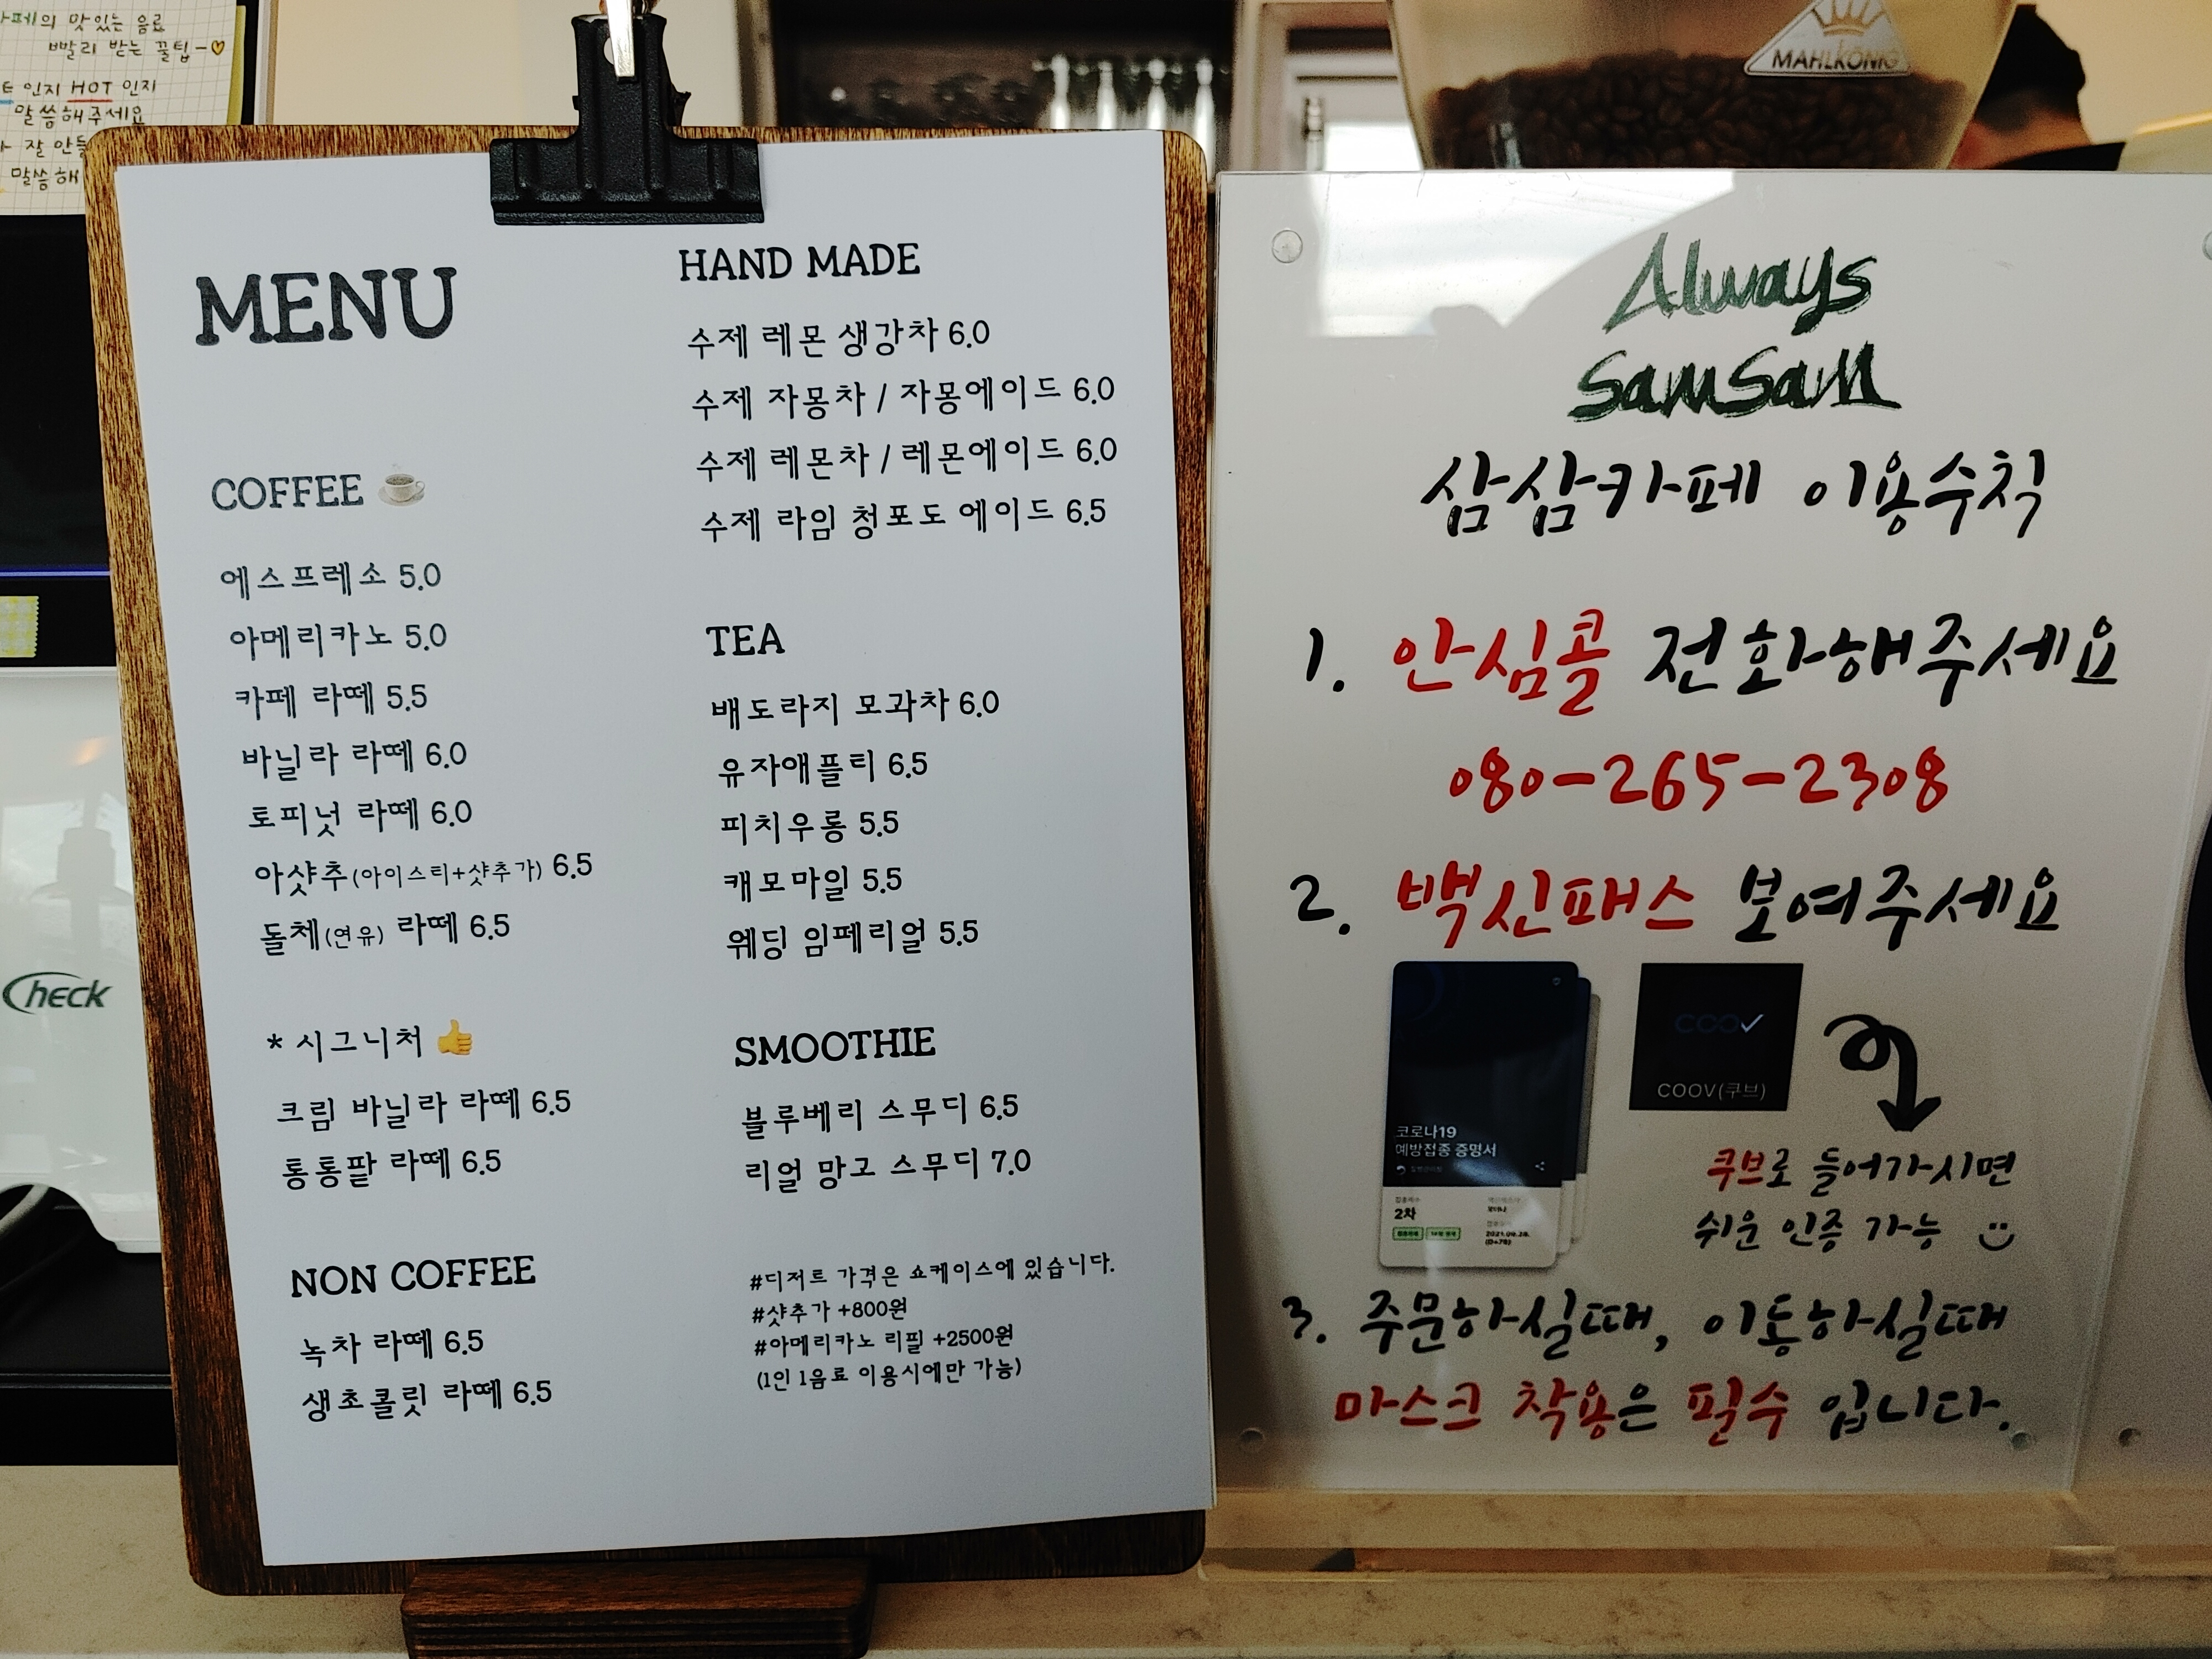 카페의 맛있는 음료
빨리 받는 꿀팁-♡
인지 HOT 인지
말씀해주세요
잘 안
말씀해
MAHLKÖNIG
MENU
COFFEE
에스프레소 5.0
아메리카노 5.0
카페 라떼 5.5
바닐라 라떼 6.0
토피넛 라떼 6.0
아샷추(아이스티+샷추가) 6.5
돌체(연유) 라떼 6.5
* 시그니처 👍
크림 바닐라 라떼 6.5
통통팥 라떼 6.5
NON COFFEE
녹차 라떼 6.5
생초콜릿 라떼 6.5
HAND MADE
수제 레몬 생강차 6.0
수제 자몽차 / 자몽에이드 6.0
수제 레몬차 / 레몬에이드 6.0
수제 라임 청포도 에이드 6.5
TEA
배도라지 모과차 6.0
유자애플티 6.5
피치우롱 5.5
캐모마일 5.5
웨딩 임페리얼 5.5
SMOOTHIE
블루베리 스무디 6.5
리얼 망고 스무디 7.0
#디저트 가격은 쇼케이스에 있습니다.
#샷추가 +800원
#아메리카노 리필 +2500원
(1인 1음료 이용시에만 가능)
Check
Always
SamSam
삼삼카페 이용수칙
1. 안심콜 전화해주세요
080-265-2308
2. 백신패스 보여주세요
코로나19
예방접종 증명서
2차
2021.09.28.
COOV
COOV(쿠브)
쿠브로 들어가시면
쉬운 인증 가능
3. 주문하실때, 이동하실때
마스크 착용은 필수 입니다.